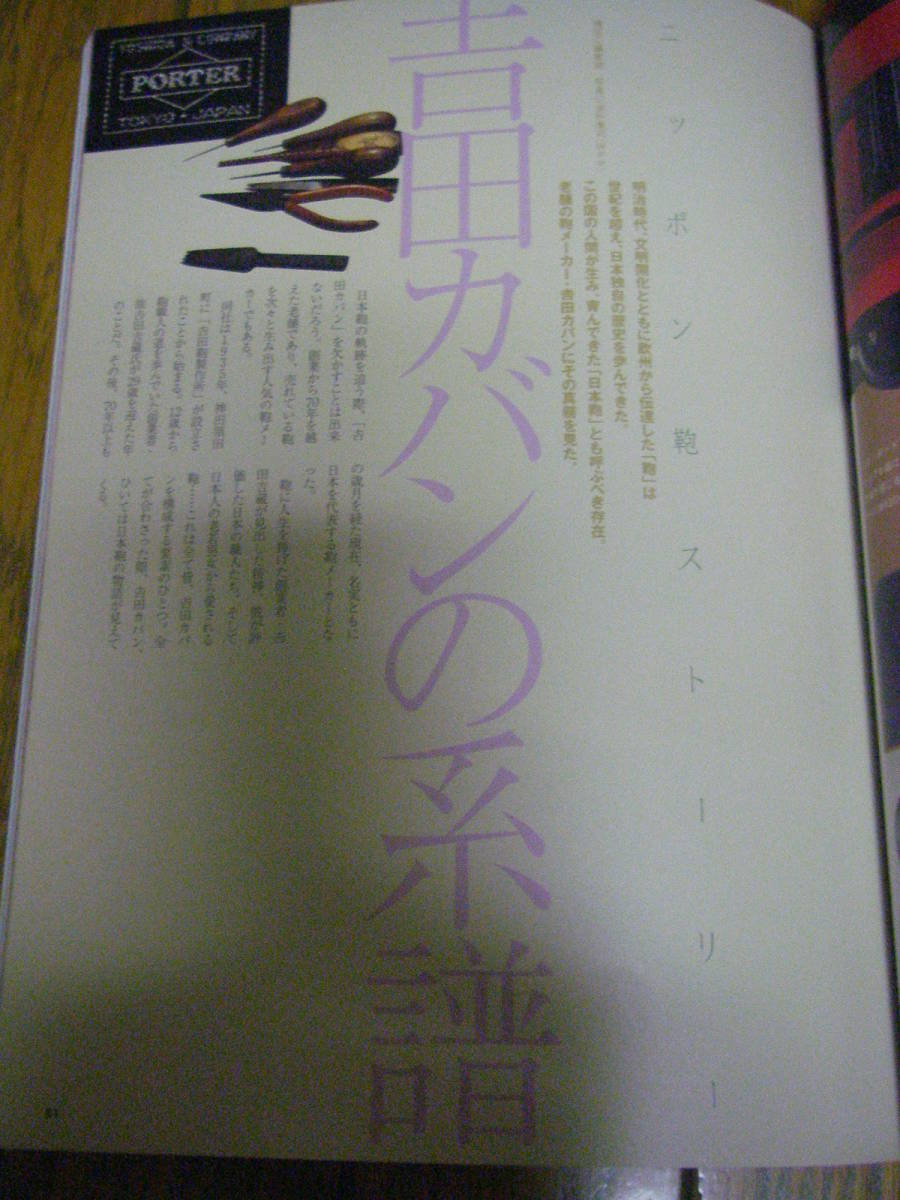 YOSHIDA & COMPANY
PORTER
TOKYO・JAPAN
ニッポン鞄ストーリー
明治時代、文明開化とともに欧州から伝達した「鞄」は
世紀を超え、日本独自の歴史を歩んできた。
この国の人間が生み、育んできた「日本鞄」とも呼ぶべき存在。
老舗の鞄メーカー・吉田カバンにその真髄を見た。
吉田カバンの系譜
日本鞄の軌跡を追う際、「吉
田カバン」を欠かすことは出来
ないだろう。創業から70年を越
えた老舗であり、売れている鞄
を次々と生み出す人気の鞄メー
カーでもある。
同社は1935年、神田須田
町に「吉田鞄製作所」が設立さ
れたことから始まる。12歳から
鞄職人の道を歩んでいた創業者・
故吉田吉蔵氏が29歳を迎えた年
のことだ。その後、70年以上も
の歳月を経た現在、名実ともに
日本を代表する鞄メーカーとな
った。
鞄に人生を捧げた創業者・吉
田吉蔵が見出した精神、彼が評
価した日本の職人たち。そして
日本人の老若男女から愛される
鞄……これは全て昔、吉田カバ
ンを構成する要素のひとつ。全
てが合わさった際、吉田カバン、
ひいては日本鞄の物語が見えて
くる。